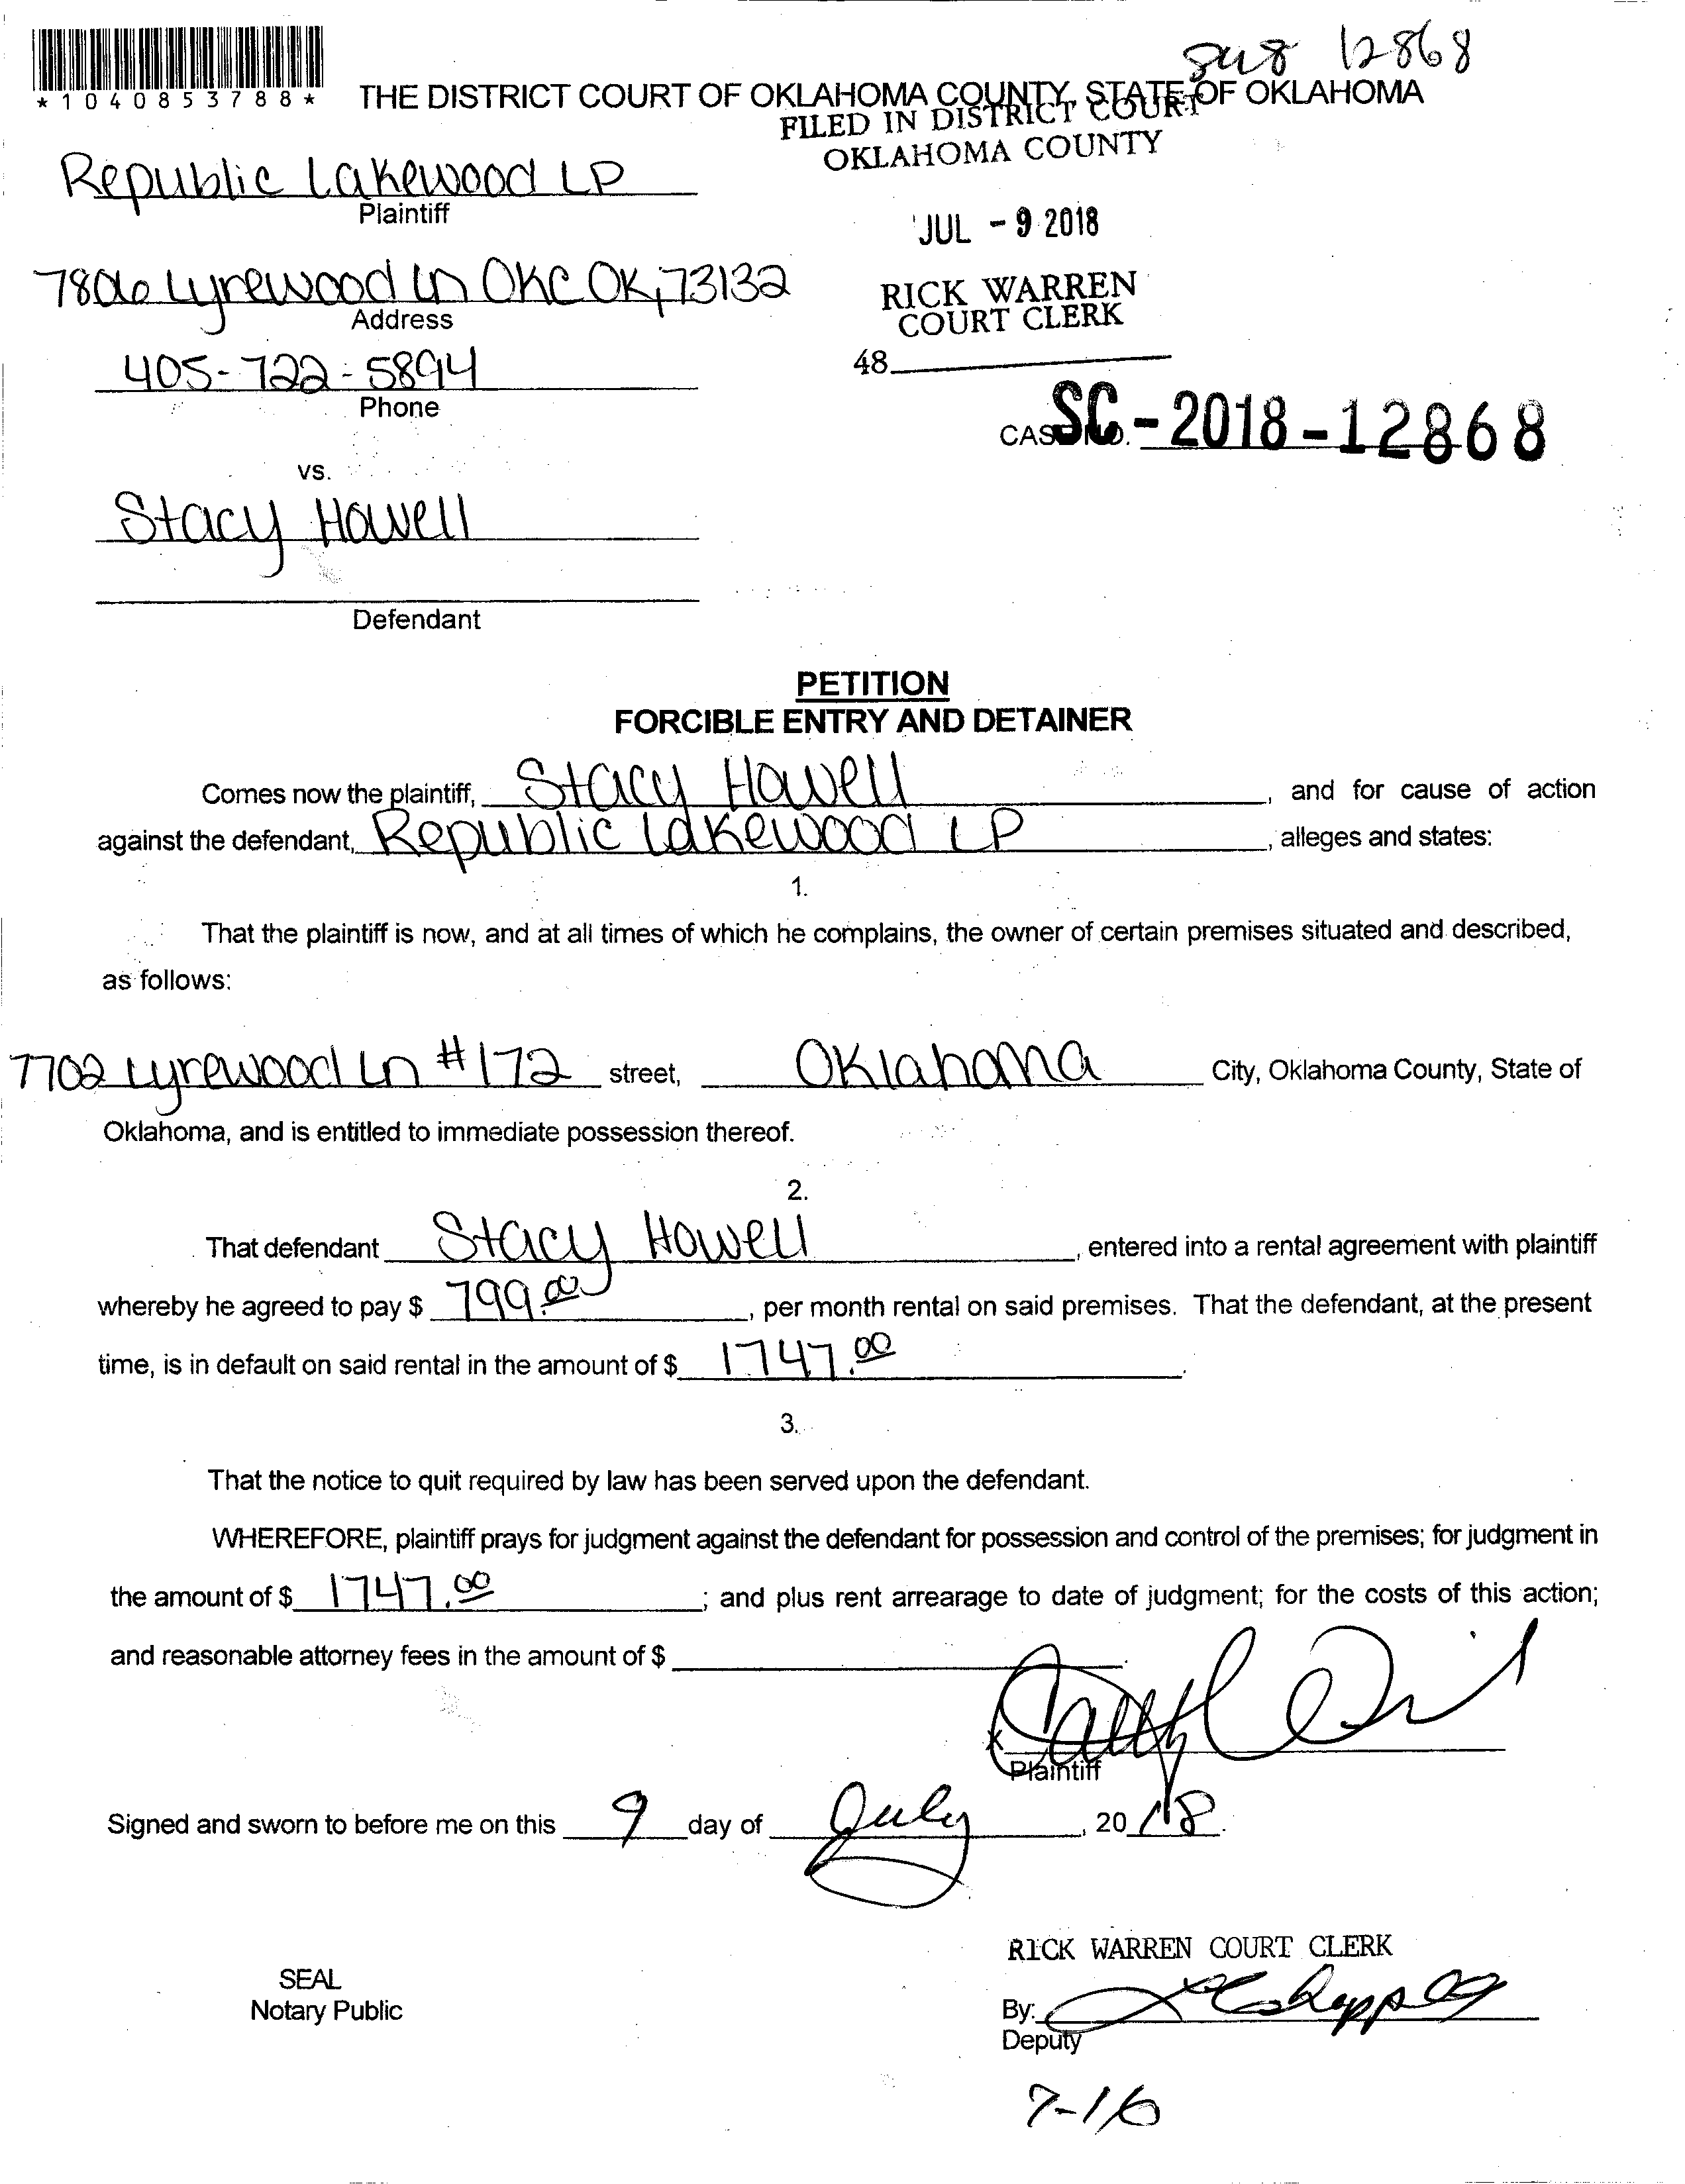 12868
*1040853788*
THE DISTRICT COURT OF OKLAHOMA COUNTY, STATE OF OKLAHOMA
FILED IN DISTRICT COURT
OKLAHOMA COUNTY
Republic Lakewood LP
Plaintiff
JUL - 9 2018
7806 Lyrewood Ln OKC OK, 73132
Address
RICK WARREN
COURT CLERK
405-722-5894
Phone
48
CASE NO. SC-2018-12868
vs.
Stacy Howell
Defendant
PETITION
FORCIBLE ENTRY AND DETAINER
Comes now the plaintiff, Stacy Howell, and for cause of action
against the defendant, Republic Lakewood LP, alleges and states:
1.
That the plaintiff is now, and at all times of which he complains, the owner of certain premises situated and described,
as follows:
7702 Lyrewood Ln #172 street, Oklahoma City, Oklahoma County, State of
Oklahoma, and is entitled to immediate possession thereof.
2.
That defendant Stacy Howell, entered into a rental agreement with plaintiff
whereby he agreed to pay $ 799.00, per month rental on said premises. That the defendant, at the present
time, is in default on said rental in the amount of $ 1747.00.
3.
That the notice to quit required by law has been served upon the defendant.
WHEREFORE, plaintiff prays for judgment against the defendant for possession and control of the premises; for judgment in
the amount of $ 1747.00; and plus rent arrearage to date of judgment; for the costs of this action;
and reasonable attorney fees in the amount of $
x
Plaintiff
Signed and sworn to before me on this 9 day of July, 2018.
RICK WARREN COURT CLERK
SEAL
Notary Public
By:
Deputy
7-16